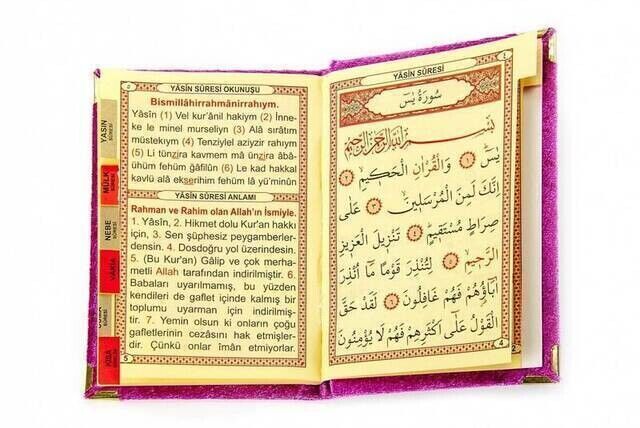 YÂSÎN SÛRESİ OKUNUŞU
Bismillâhirrahmânirrahıym.
Yâsîn (1) Vel kur'ânil hakiym (2) İnne-
ke le minel murseliyn (3) Alâ sırâtım
müstekıym (4) Tenziylel aziyzir rahıym
(5) Li tünzira kavmem mâ ünzira âbâ-
ühüm fehüm gâfilûn (6) Le kad hakkal
kavlü alâ ekserihim fehüm lâ yü'minûn
YÂSÎN SÛRESİ ANLAMI
Rahman ve Rahim olan Allah'ın İsmiyle.
1. Yâsîn, 2. Hikmet dolu Kur'an hakkı
için, 3. Sen şüphesiz peygamberler-
densin. 4. Dosdoğru yol üzerindesin.
5. (Bu Kur'an) Gâlip ve çok merha-
metli Allah tarafından indirilmiştir. 6.
Babaları uyarılmamış, bu yüzden
kendileri de gaflet içinde kalmış bir
toplumu uyarman için indirilmiş-
tir. 7. Yemin olsun ki onların çoğu
gafletlerinin cezasını hak etmişler-
dir. Çünkü onlar îmân etmiyorlar.
5
YASİN
SÛRESİ
MÜLK
SÛRESİ
NEBE
SÛRESİ
KISA
YÂSÎN SÛRESİ
سُورَةُ يٰسٓ
بِسْمِ اللّٰهِ الرَّحْمٰنِ الرَّحِيمِ
يٰسٓ ﴿١﴾ وَالْقُرْاٰنِ الْحَكِيمِ ﴿٢﴾
اِنَّكَ لَمِنَ الْمُرْسَلِينَ ﴿٣﴾ عَلٰى
صِرَاطٍ مُسْتَقِيمٍ ﴿٤﴾ تَنْزِيلَ الْعَزِيزِ
الرَّحِيمِ ﴿٥﴾ لِتُنْذِرَ قَوْمًا مَٓا اُنْذِرَ
اٰبَٓاؤُ۬هُمْ فَهُمْ غَافِلُونَ ﴿٦﴾ لَقَدْ حَقَّ
الْقَوْلُ عَلٰٓى اَكْثَرِهِمْ فَهُمْ لَا يُؤْمِنُونَ
4
2